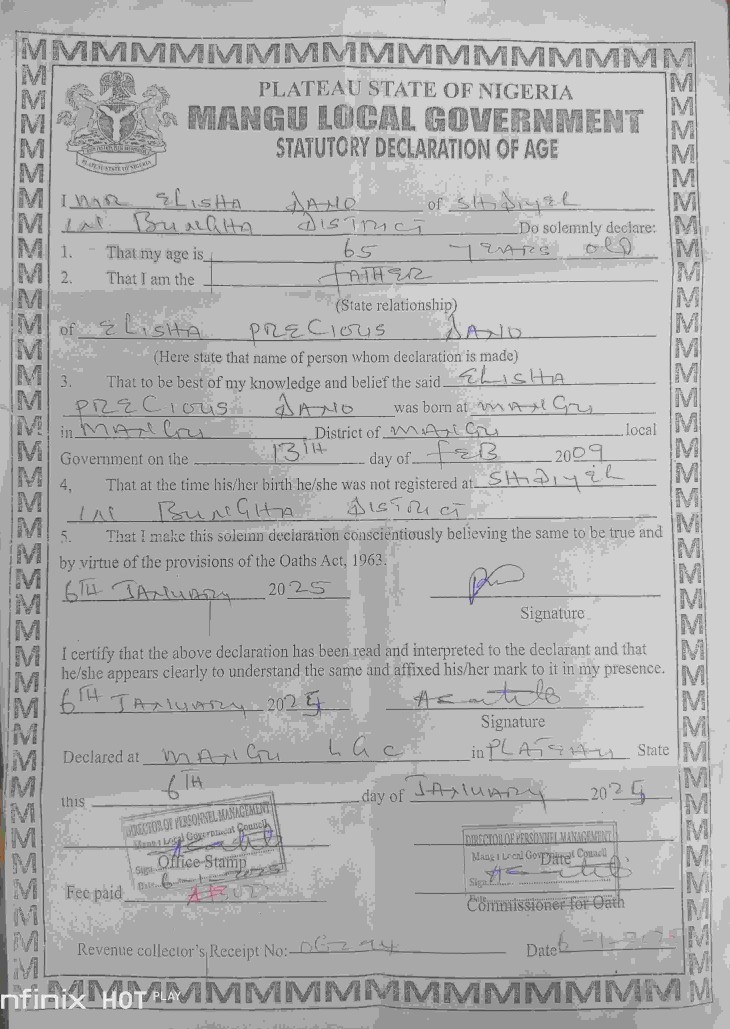 PLATEAU STATE OF NIGERIA
MANGU LOCAL GOVERNMENT
STATUTORY DECLARATION OF AGE
PLATEAU STATE OF NIGERIA
I MR ELISHA DANO of SHDIYEL
IN BUNGHA DISTRICT Do solemnly declare:
1. That my age is 65 YEARS OLD
2. That I am the FATHER
(State relationship)
of ELISHA PRECIOUS DANO
(Here state that name of person whom declaration is made)
3. That to be best of my knowledge and belief the said ELISHA
PRECIOUS DANO was born at MANGU
in MANGU District of MANGU local
Government on the 13TH day of FEB 2009
4, That at the time his/her birth he/she was not registered at SHDIYEL
IN BUNGHA DISTRICT
5. That I make this solemn declaration conscientiously believing the same to be true and
by virtue of the provisions of the Oaths Act, 1963.
6TH JANUARY 2025
Signature
I certify that the above declaration has been read and interpreted to the declarant and that
he/she appears clearly to understand the same and affixed his/her mark to it in my presence.
6TH JANUARY 2025
Signature
Declared at MANGU LGC in PLATEAU State
this 6TH day of JANUARY 2025
DIRECTOR OF PERSONNEL MANAGEMENT
Mangu Local Government Council
Office Stamp
Sign
Date 6-1-2025
Fee paid
DIRECTOR OF PERSONNEL MANAGEMENT
Mangu Local Government Council
Date
Sign
Date
Commissioner for Oath
Revenue collector's Receipt No: Date 6-1-2025
nfinix HOT PLAY